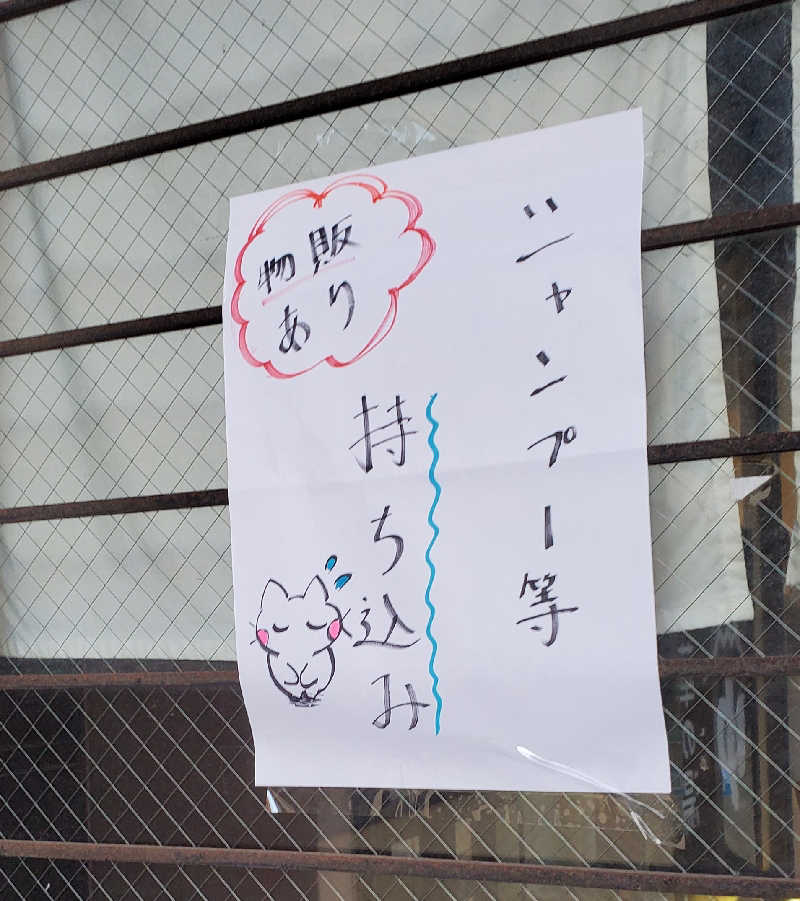 シャンプー等
持ち込み
物販
あり